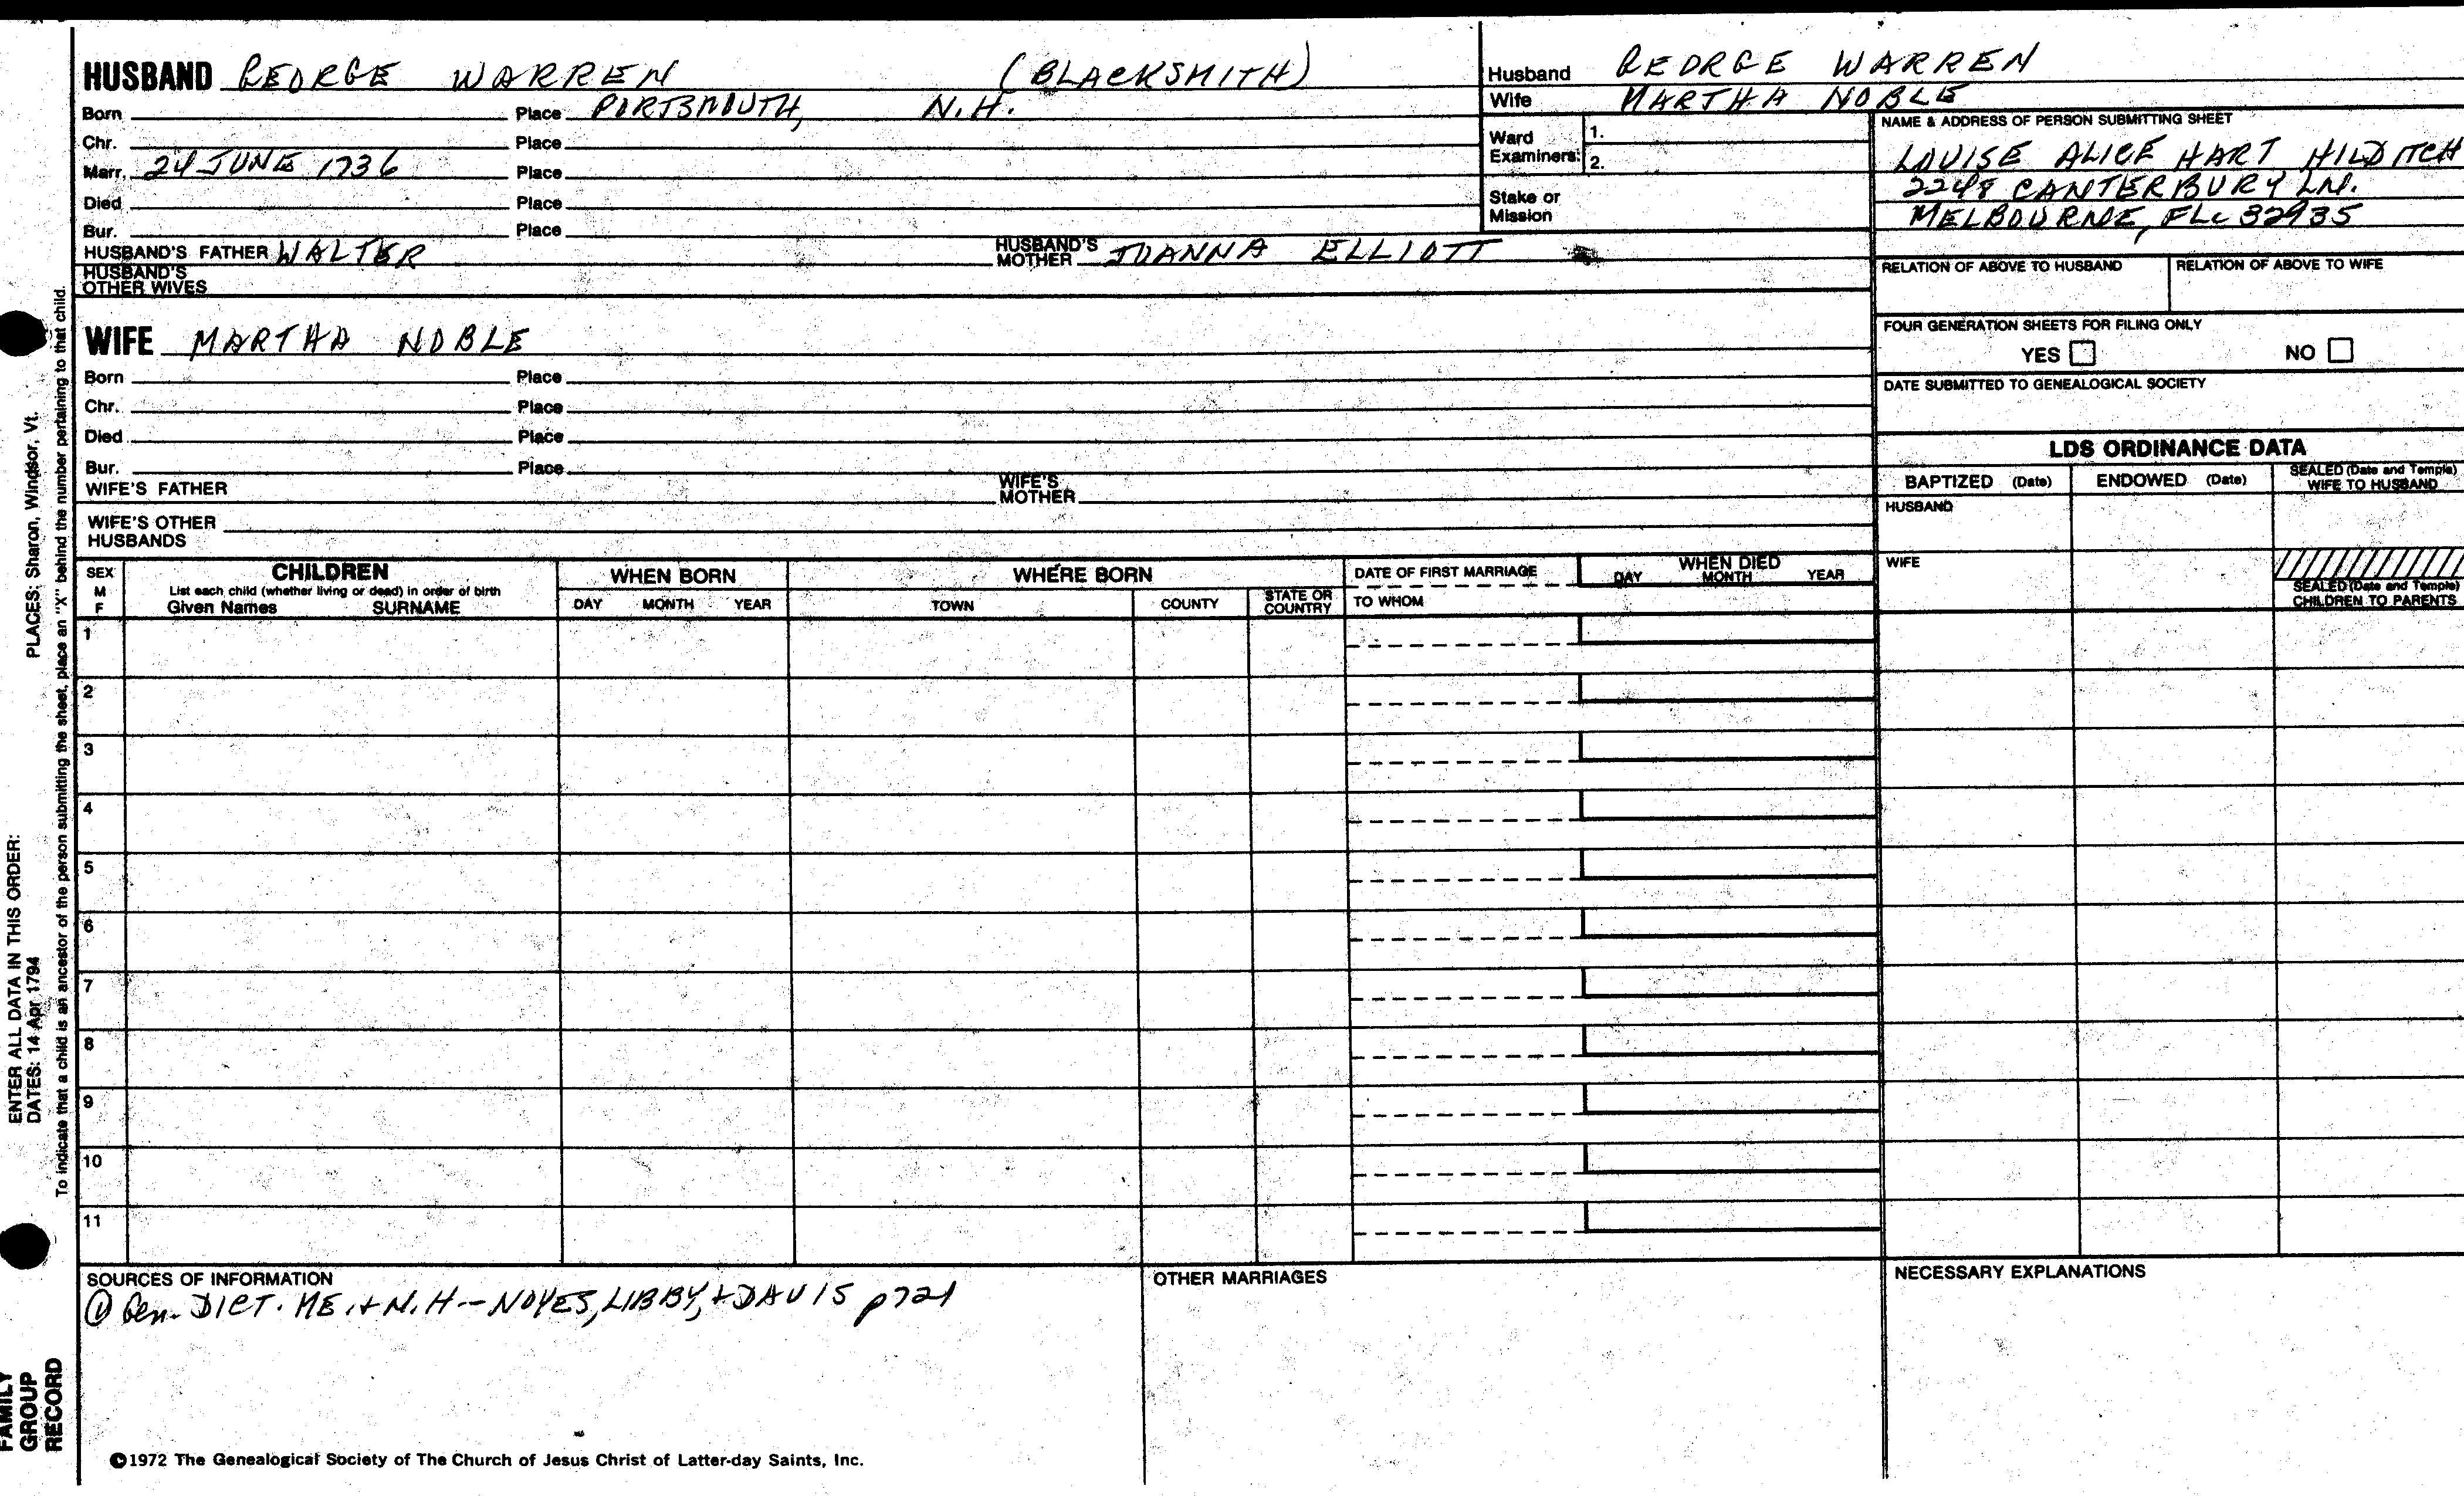 HUSBAND GEORGE WARREN (BLACKSMITH)
Born Place PORTSMOUTH, N.H.
Chr. Place
Marr. 24 JUNE 1736 Place
Died Place
Bur. Place
HUSBAND'S FATHER WALTER HUSBAND'S MOTHER JOANNA ELLIOTT
HUSBAND'S OTHER WIVES
Husband GEORGE WARREN
Wife MARTHA NOBLE
Ward Examiners: 1.
2.
Stake or Mission
NAME & ADDRESS OF PERSON SUBMITTING SHEET
LOUISE ALICE HART HILDITCH
2248 CANTERBURY LN.
MELBOURNE, FLa 32935
RELATION OF ABOVE TO HUSBAND RELATION OF ABOVE TO WIFE
FOUR GENERATION SHEETS FOR FILING ONLY
YES NO
DATE SUBMITTED TO GENEALOGICAL SOCIETY
WIFE MARTHA NOBLE
Born Place
Chr. Place
Died Place
Bur. Place
WIFE'S FATHER WIFE'S MOTHER
WIFE'S OTHER HUSBANDS
LDS ORDINANCE DATA
BAPTIZED (Date) ENDOWED (Date) SEALED (Date and Temple) WIFE TO HUSBAND
HUSBAND
WIFE
SEALED (Date and Temple) CHILDREN TO PARENTS
SEX M F
CHILDREN
List each child (whether living or dead) in order of birth
Given Names SURNAME
WHEN BORN
DAY MONTH YEAR
WHERE BORN
TOWN COUNTY STATE OR COUNTRY
DATE OF FIRST MARRIAGE
TO WHOM
WHEN DIED
DAY MONTH YEAR
1
2
3
4
5
6
7
8
9
10
11
SOURCES OF INFORMATION
① Gen. DICT. ME. + N.H - NOYES, LIBBY, + DAVIS p721
OTHER MARRIAGES
NECESSARY EXPLANATIONS
©1972 The Genealogical Society of The Church of Jesus Christ of Latter-day Saints, Inc.
FAMILY
GROUP
RECORD
ENTER ALL DATA IN THIS ORDER:
DATES: 14 Apr 1794
PLACES: Sharon, Windsor, Vt.
To indicate that a child is an ancestor of the person submitting the sheet, place an "X" behind the number pertaining to that child.